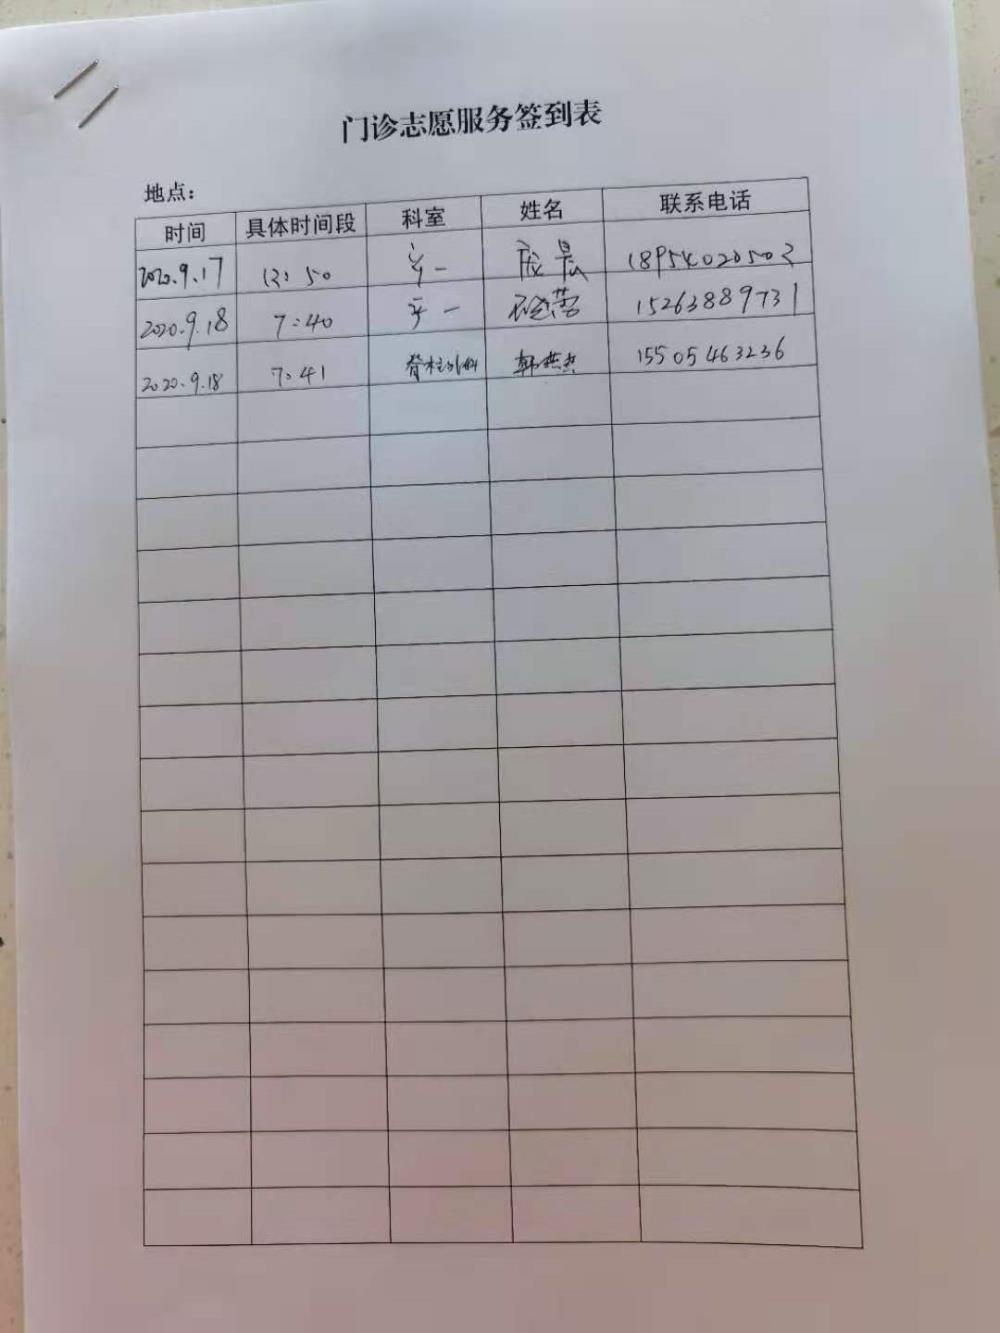 门诊志愿服务签到表
地点：
时间 具体时间段 科室 姓名 联系电话
2020.9.17 13:50 18954020502
2020.9.18 7:40 15263889731
2020.9.18 7:41 脊柱外科 韩燕燕 15505463236